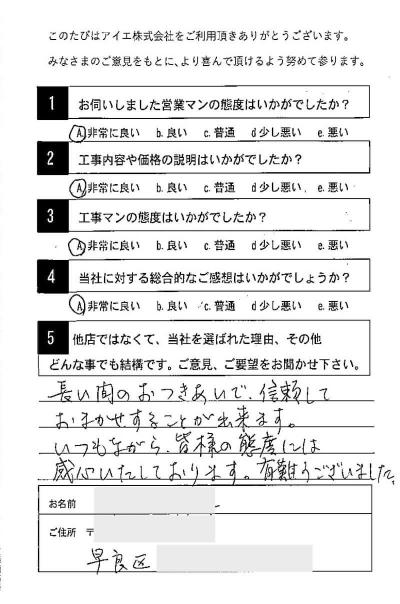 このたびはアイエ株式会社をご利用頂きありがとうございます。
みなさまのご意見をもとに、より喜んで頂けるよう努めて参ります。
1 お伺いしました営業マンの態度はいかがでしたか?
A.非常に良い b.良い c.普通 d少し悪い e.悪い
2 工事内容や価格の説明はいかがでしたか?
A.非常に良い b.良い c.普通 d少し悪い e.悪い
3 工事マンの態度はいかがでしたか?
A.非常に良い b.良い c.普通 d少し悪い e.悪い
4 当社に対する総合的なご感想はいかがでしょうか?
A.非常に良い b.良い c.普通 d少し悪い e.悪い
5 他店ではなくて、当社を選ばれた理由、その他
どんな事でも結構です。ご意見、ご要望をお聞かせ下さい。
長い間のおつきあいで、信頼して
おまかせすることが出来ます。
いつもながら、皆様の態度には
感心いたしております。有難うございました。
お名前
ご住所 〒
早良区